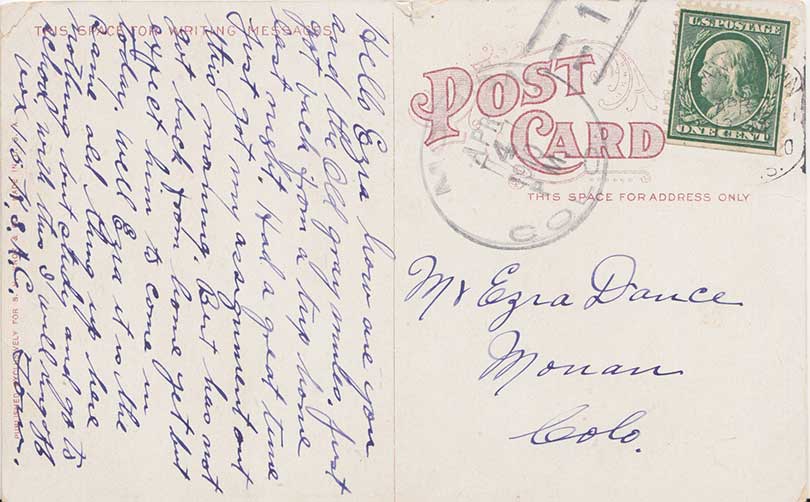 THIS SPACE FOR WRITING MESSAGES
Hello Ezra how are you
and the Old gray mules. Just
got back from a trip home
last night. Had a great time
Just got my assignment out
this morning. But has not
got back from home yet but
expect him to come in
today, well Ezra it is the
same old thing up here
nothing but study and go to
school, well this I will ring off
POST
CARD
THIS SPACE FOR ADDRESS ONLY
U.S. POSTAGE
ONE CENT
APR
COLO
Mr Ezra Dance
Monan
Colo.